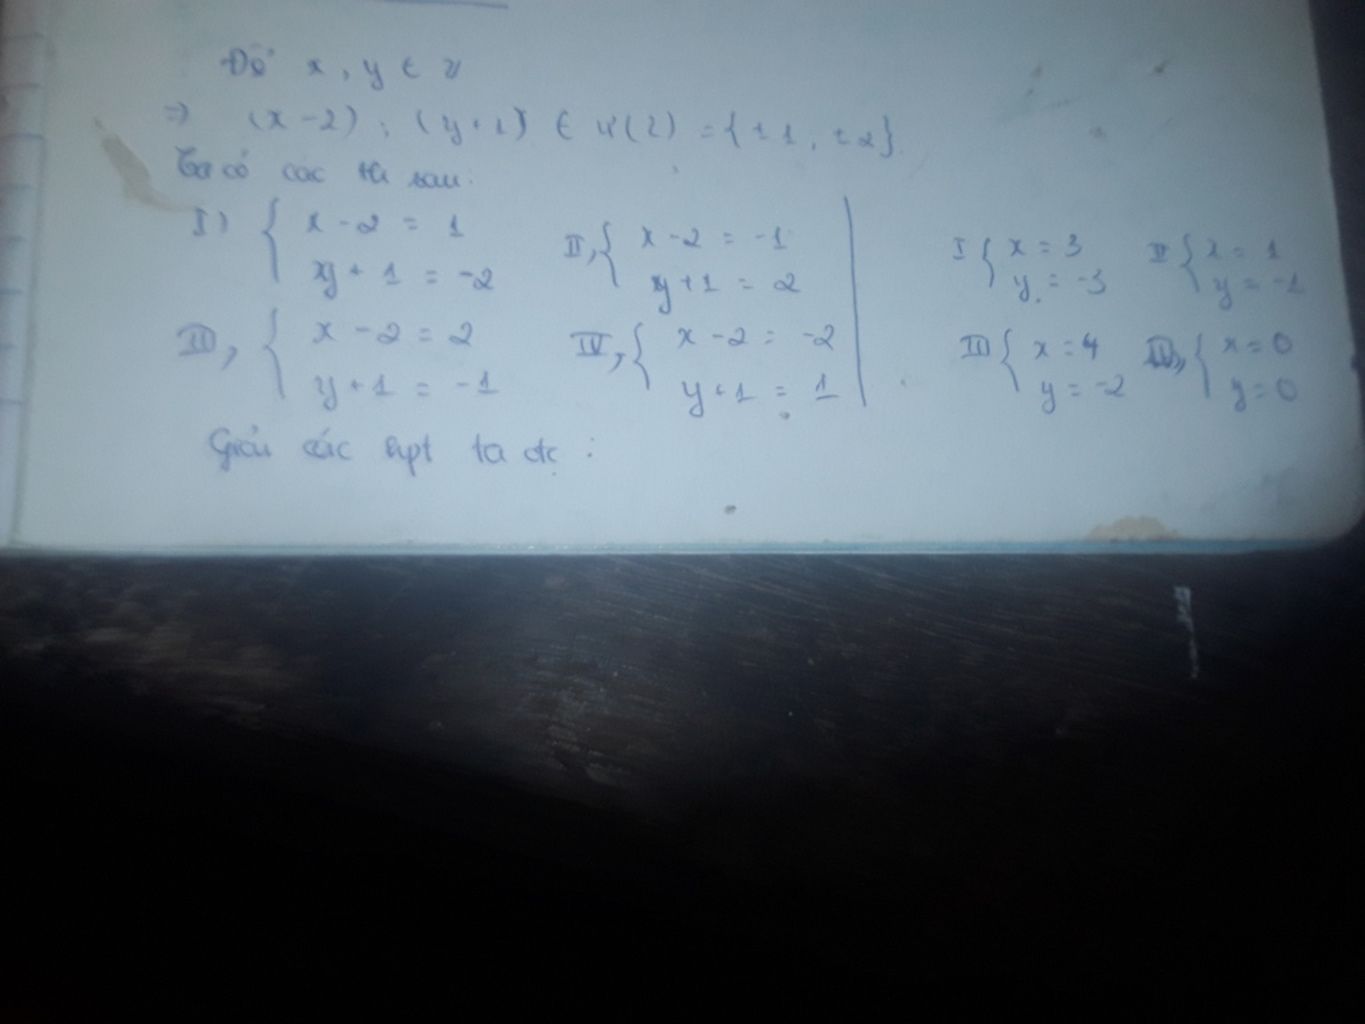 Để x, y ∈ Z
=> (x-2); (y+1) ∈ Ư(2) = {±1, ±2}.
Ta có các th sau:
I) { x - 2 = 1
y + 1 = -2
II, { x - 2 = -1
y + 1 = 2
III, { x - 2 = 2
y + 1 = -1
IV, { x - 2 = -2
y + 1 = 1
Giải các hpt ta đc :
I { x = 3
y = -3
II { x = 1
y = -1
III { x = 4
y = -2
{ x = 0
y = 0